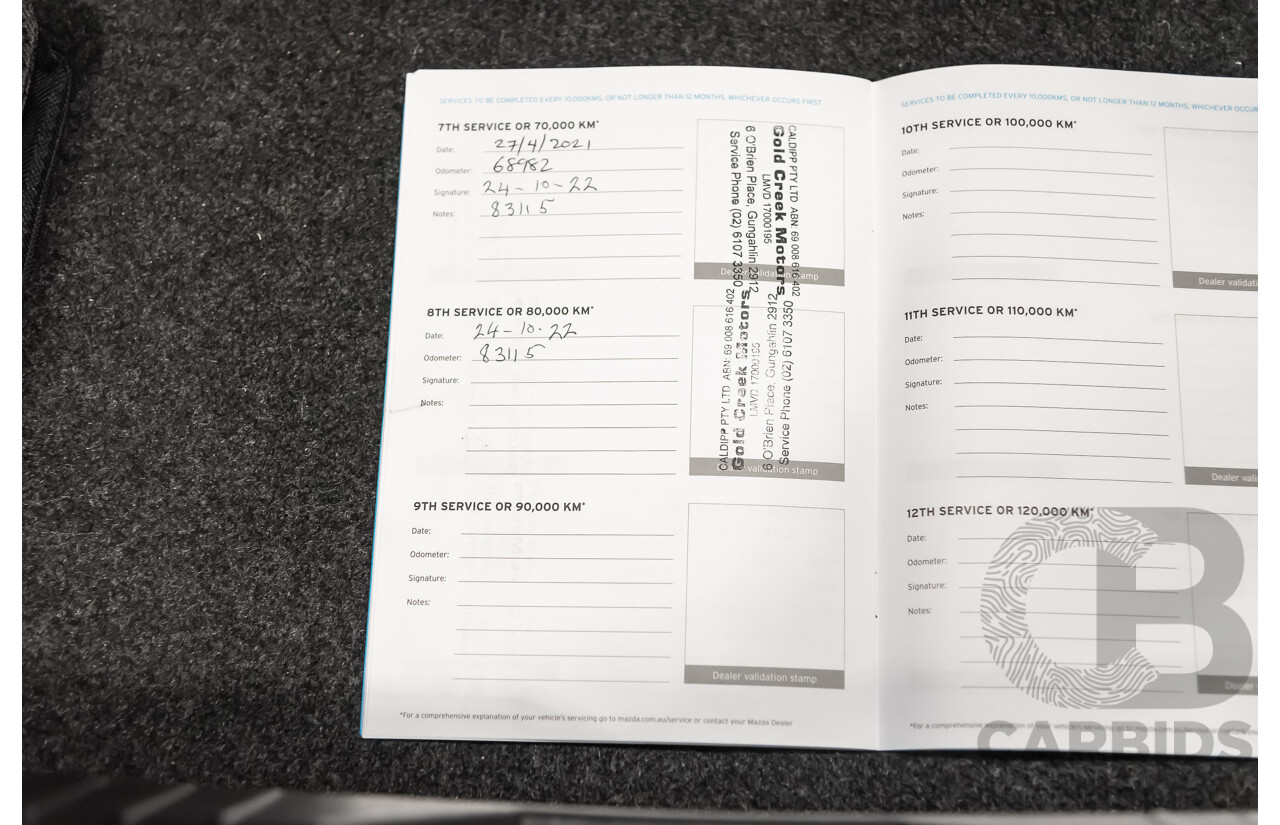 SERVICES TO BE COMPLETED EVERY 10,000KMS, OR NOT LONGER THAN 12 MONTHS, WHICHEVER OCCURS FIRST
7TH SERVICE OR 70,000 KM*
Date: 27/4/2021
Odometer: 68982
Signature: 24-10-22
Notes: 83115
CALDIPP PTY LTD ABN: 69 008 616 402
Gold Creek Motors
LMVD 17000195
6 O'Brien Place, Gungahlin 2912
Service Phone (02) 6107 3350
Dealer validation stamp
8TH SERVICE OR 80,000 KM*
Date: 24-10-22
Odometer: 83115
Signature:
Notes:
CALDIPP PTY LTD ABN: 69 008 616 402
Gold Creek Motors
LMVD 17000195
6 O'Brien Place, Gungahlin 2912
Service Phone (02) 6107 3350
Dealer validation stamp
9TH SERVICE OR 90,000 KM*
Date:
Odometer:
Signature:
Notes:
Dealer validation stamp
*For a comprehensive explanation of your vehicle's servicing go to mazda.com.au/service or contact your Mazda Dealer
SERVICES TO BE COMPLETED EVERY 10,000KMS, OR NOT LONGER THAN 12 MONTHS, WHICHEVER OCCUR
10TH SERVICE OR 100,000 KM*
Date:
Odometer:
Signature:
Notes:
Dealer validati
11TH SERVICE OR 110,000 KM*
Date:
Odometer:
Signature:
Notes:
Dealer valid
12TH SERVICE OR 120,000 KM*
Date:
Odometer:
Signature:
Notes:
Dealer
*For a comprehensive explanation of your vehicle's servicing go to
CARBIDS